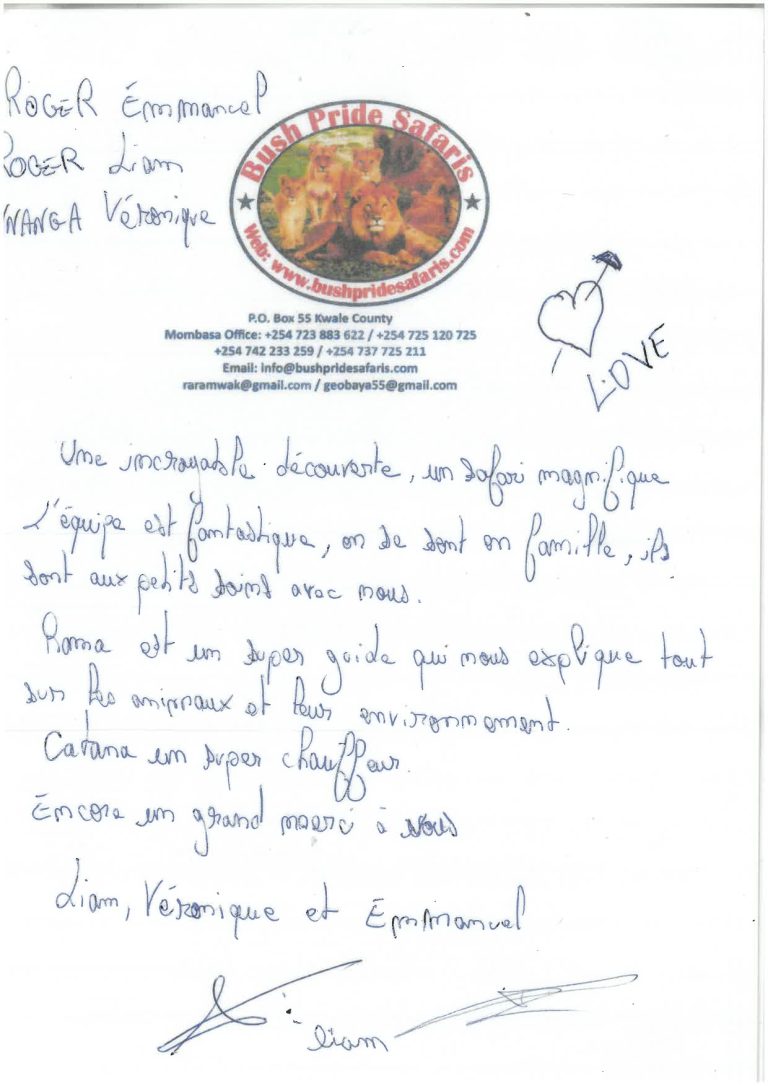 ROGER Émmanuel
ROGER Liam
WANGA Véronique
Bush Pride Safaris
Web: www.bushpridesafaris.com
P.O. Box 55 Kwale County
Mombasa Office: +254 723 883 622 / +254 725 120 725
+254 742 233 259 / +254 737 725 211
Email: info@bushpridesafaris.com
raramwak@gmail.com / geobaya55@gmail.com
LOVE
Une incroyable découverte, un safari magnifique
L'équipe est fantastique, on se sent en famille, ils
sont aux petits soins avec nous.
Rama est un super guide qui nous explique tout
sur les animaux et leur environnement.
Catana un super chauffeur.
Éncore un grand merci à vous
Liam, Véronique et Émmanuel
liam